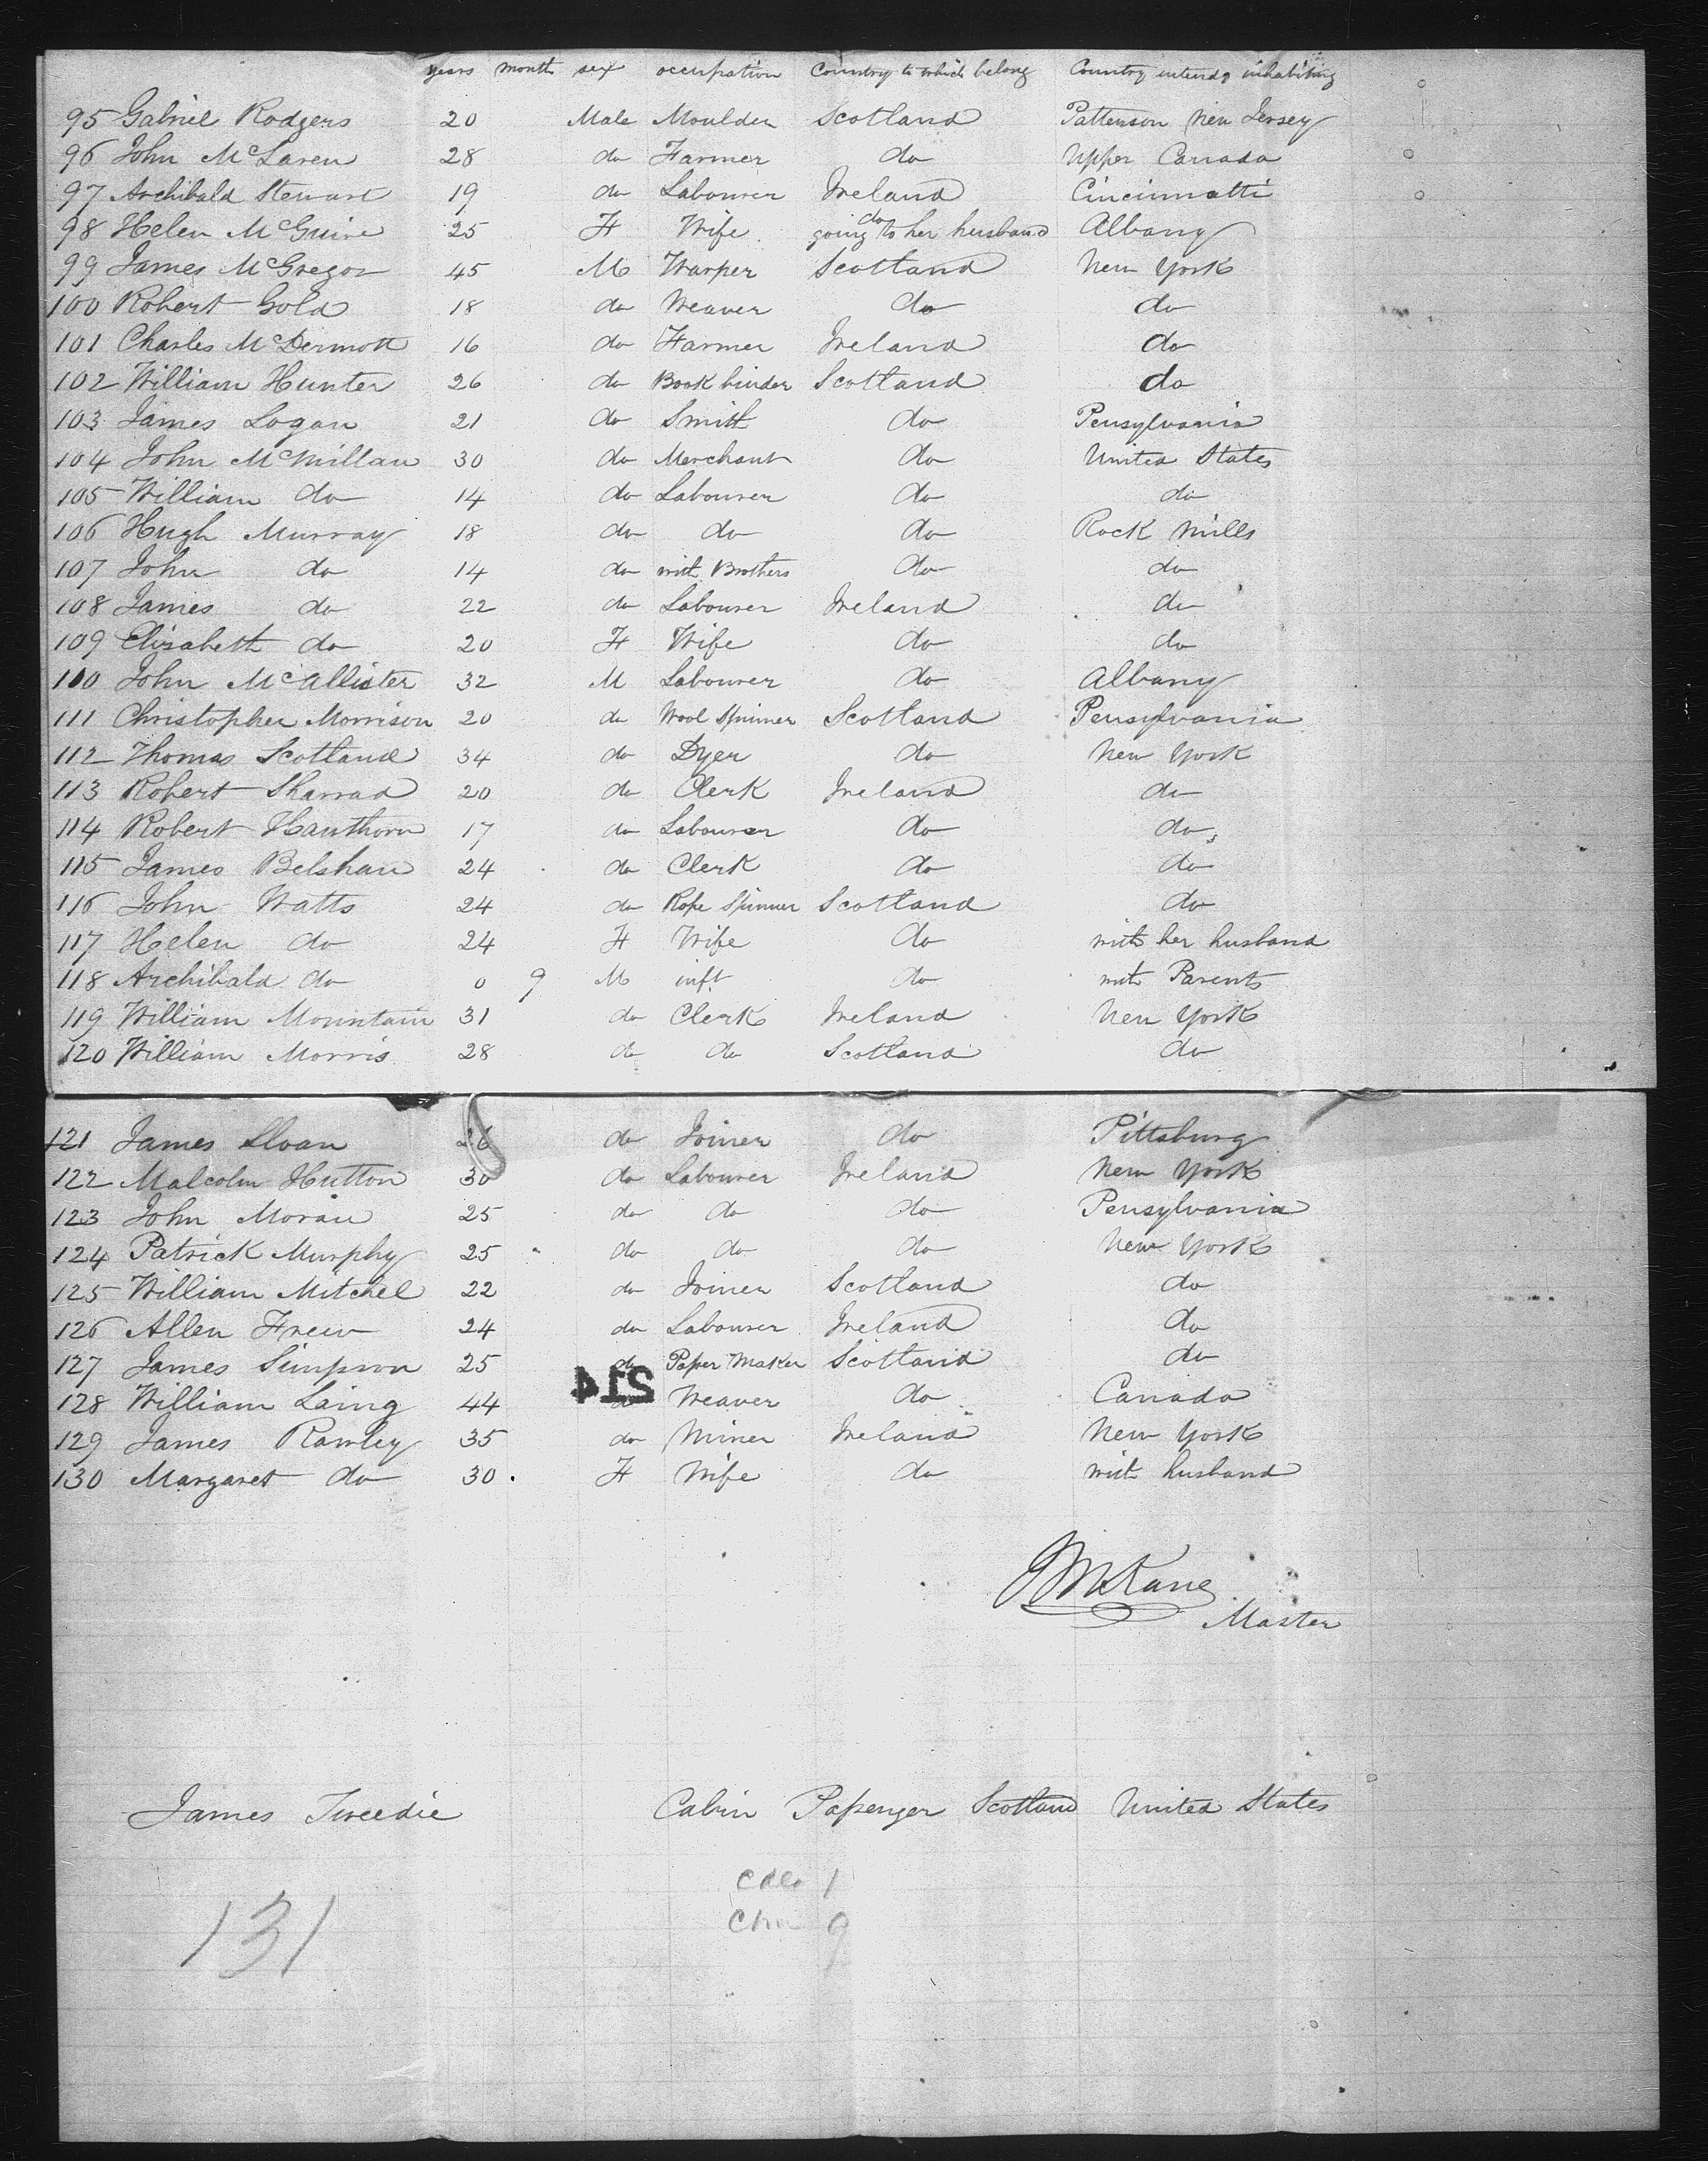 years month sex occupation Country to which belong Country intendg inhabiting
95 Gabriel Rodgers 20 Male Moulder Scotland Patterson New Jersey
96 John McLaren 28 do Farmer do Upper Canada
97 Archibald Stewart 19 do Labourer Ireland Cincinnatti
98 Helen McGuire 25 F Wife do going to her husband Albany
99 James McGregor 45 M Warper Scotland New York
100 Robert Gold 18 do Weaver do do
101 Charles McDermott 16 do Farmer Ireland do
102 William Hunter 26 do Book binder Scotland do
103 James Logan 21 do Smith do Pensylvania
104 John McMillan 30 do Merchant do United States
105 William do 14 do Labourer do do
106 Hugh Murray 18 do do do Rock Mills
107 John do 14 do with Brothers do do
108 James do 22 do Labourer Ireland do
109 Elisabeth do 20 F Wife do do
110 John McAllister 32 M Labourer do Albany
111 Christopher Morrison 20 do Wool Spinner Scotland Pensylvania
112 Thomas Scotland 34 do Dyer do New York
113 Robert Sharrad 20 do Clerk Ireland do
114 Robert Hawthorn 17 do Labourer do do
115 James Belshaw 24 do Clerk do do
116 John Watts 24 do Rope Spinner Scotland do
117 Helen do 24 F Wife do with her husband
118 Archibald do 0 9 M inft do with Parents
119 William Mountain 31 do Clerk Ireland New York
120 William Morris 28 do do Scotland do
121 James Sloan 26 do Joiner do Pittsburg
122 Malcolm Hutton 30 do Labourer Ireland New York
123 John Moran 25 do do do Pensylvania
124 Patrick Murphy 25 do do do New York
125 William Mitchel 22 do Joiner Scotland do
126 Allen Frew 24 do Labourer Ireland do
127 James Simpson 25 do Paper Maker Scotland do
214
128 William Laing 44 do Weaver do Canada
129 James Rawley 35 do Miner Ireland New York
130 Margaret do 30 F Wife do with husband
McKane
Master
James Tweedie Cabin Passenger Scotland United States
1
131 9